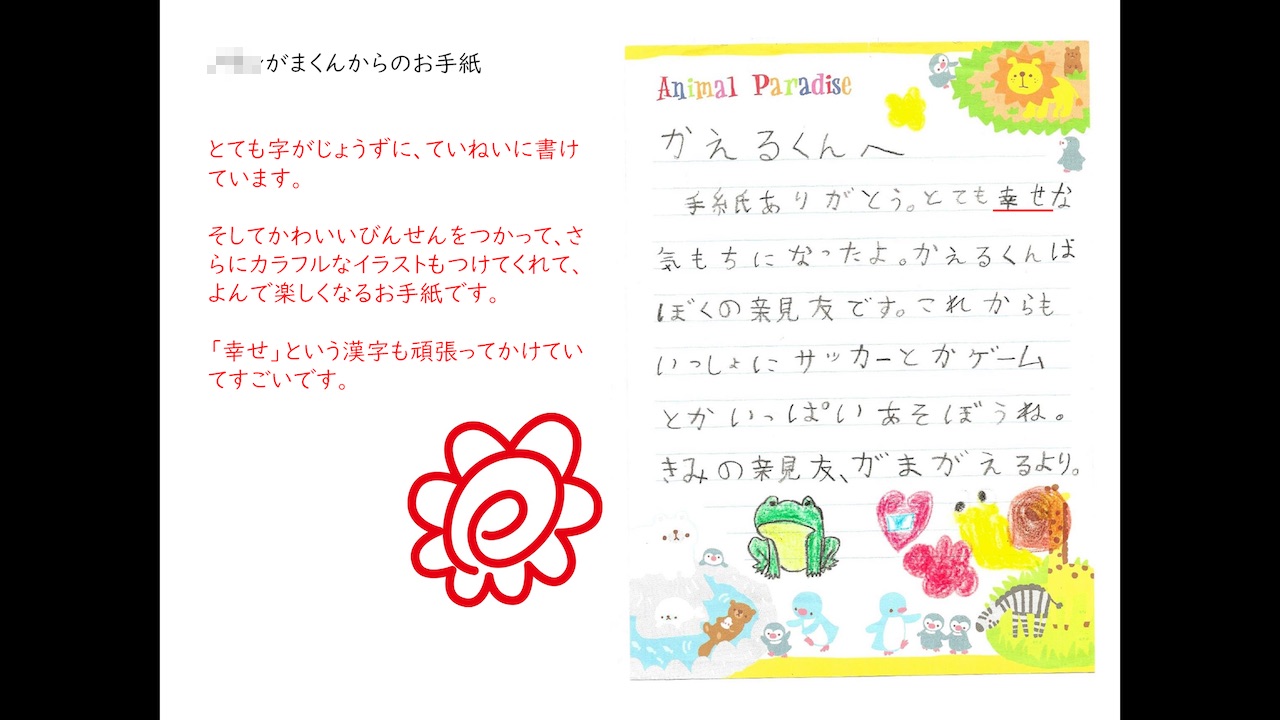 がまくんからのお手紙
とても字がじょうずに、ていねいに書け
ています。
そしてかわいいびんせんをつかって、さ
らにカラフルなイラストもつけてくれて、
よんで楽しくなるお手紙です。
「幸せ」という漢字も頑張ってかけてい
てすごいです。
Animal Paradise
かえるくんへ
手紙ありがとう。とても幸せな
気もちになったよ。かえるくんは
ぼくの親友です。これからも
いっしょにサッカーとかゲーム
とかいっぱいあそぼうね。
きみの親友、がまがえるより。